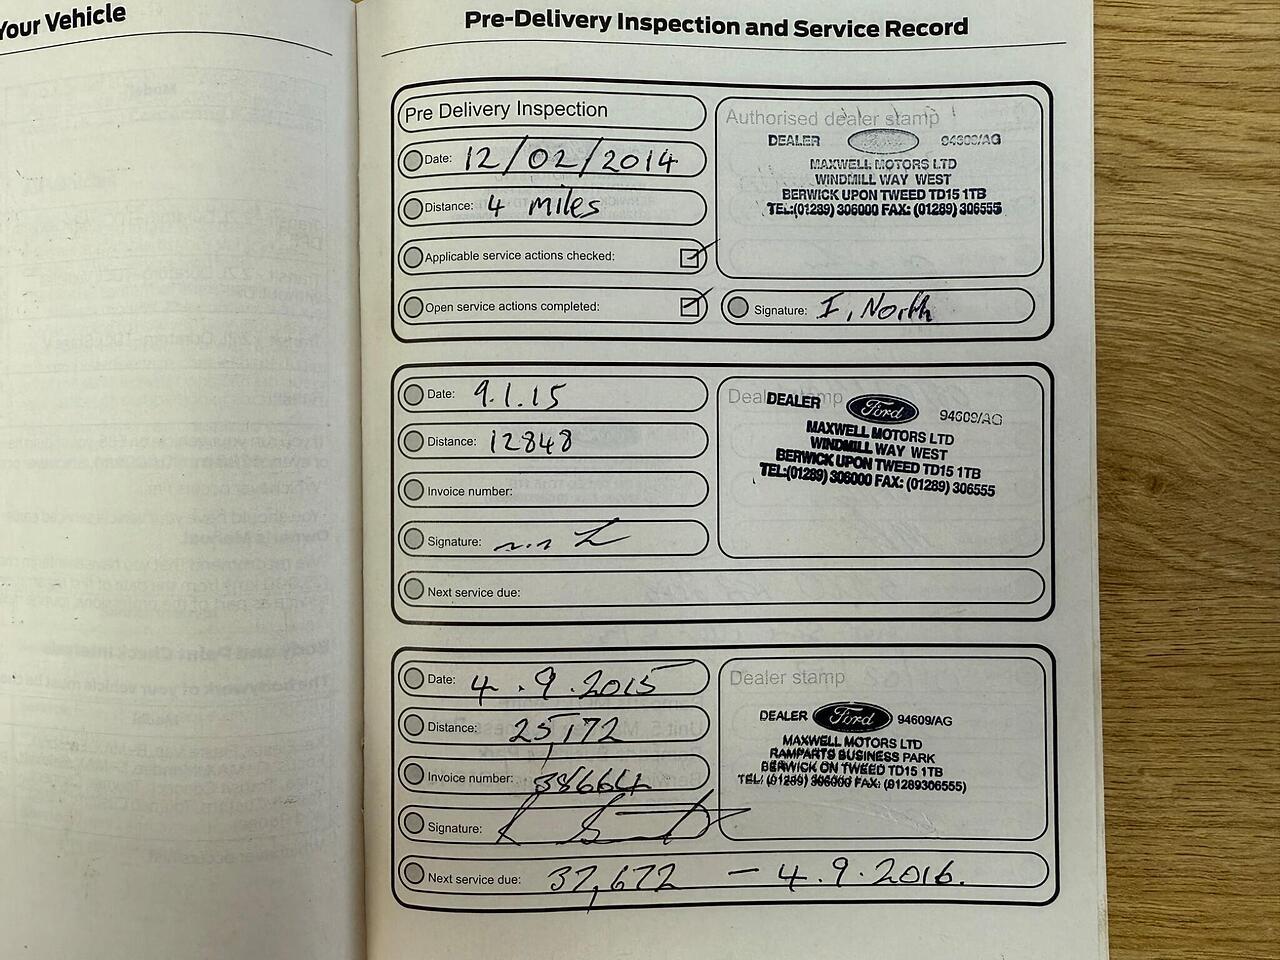 Your Vehicle
Pre-Delivery Inspection and Service Record
Pre Delivery Inspection
Date: 12/02/2014
Distance: 4 miles
Applicable service actions checked:
Open service actions completed:
Authorised dealer stamp
DEALER Ford 94609/AG
MAXWELL MOTORS LTD
WINDMILL WAY WEST
BERWICK UPON TWEED TD15 1TB
TEL:(01289) 306000 FAX: (01289) 306555
Signature: I, North
Date: 9.1.15
Distance: 12848
Invoice number:
Signature:
Next service due:
Dealer stamp
DEALER Ford 94609/AG
MAXWELL MOTORS LTD
WINDMILL WAY WEST
BERWICK UPON TWEED TD15 1TB
TEL:(01289) 306000 FAX: (01289) 306555
Date: 4.9.2015
Distance: 25,172
Invoice number: 38664
Signature:
Next service due: 37,672 - 4.9.2016.
Dealer stamp
DEALER Ford 94609/AG
MAXWELL MOTORS LTD
RAMPARTS BUSINESS PARK
BERWICK ON TWEED TD15 1TB
TEL: (01289) 306000 FAX: (01289306555)